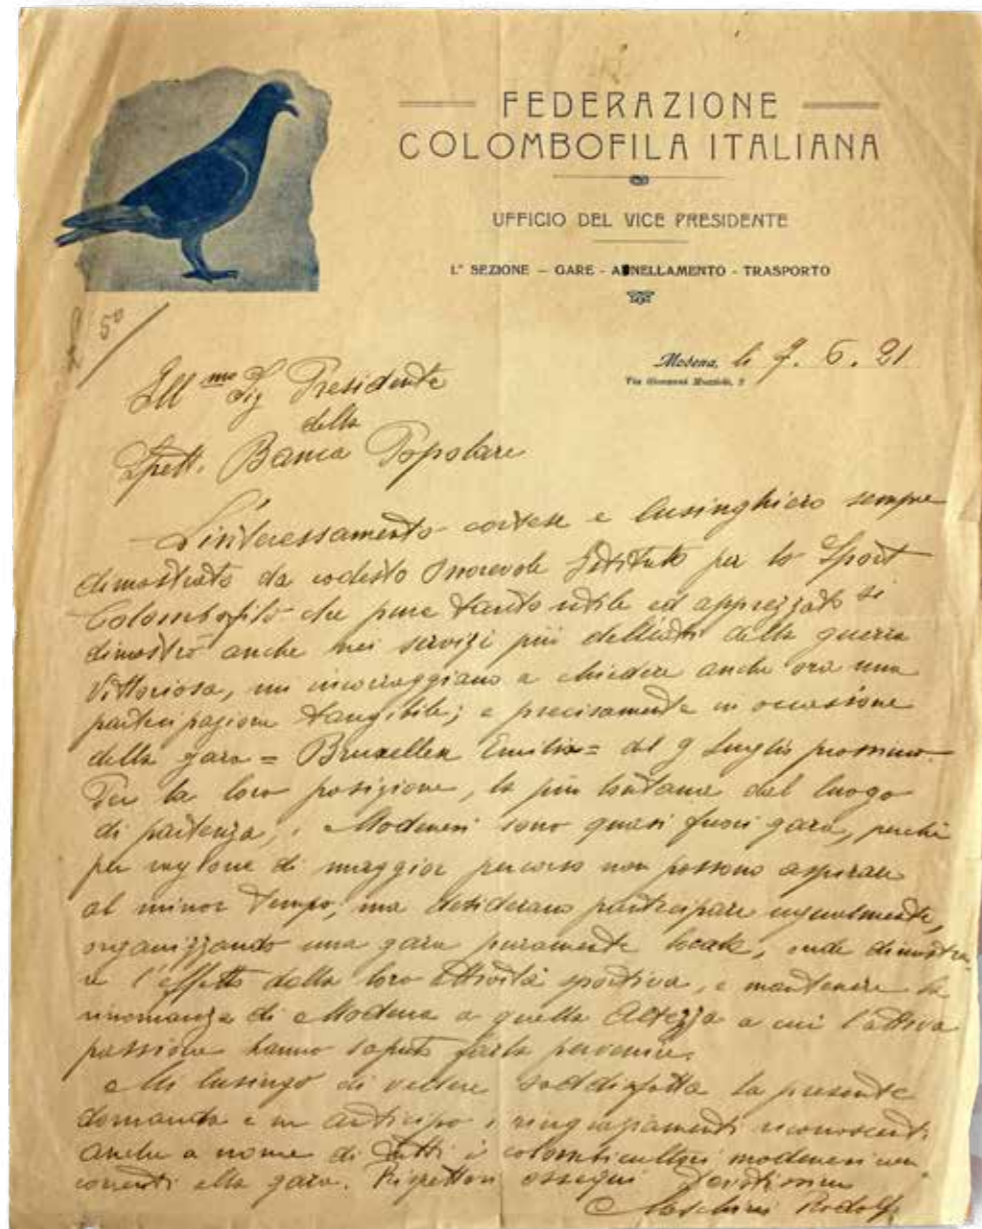 FEDERAZIONE
COLOMBOFILA ITALIANA
UFFICIO DEL VICE PRESIDENTE
1.ª SEZIONE – GARE - ANNELLAMENTO - TRASPORTO
50
Modena, li 7. 6. 21
Via Giovanni Muzzioli, 2
Ill.mo Sig Presidente
della
Spett. Banca Popolare
L'interessamento cortese e lusinghiero sempre
dimostrato da codesto Onorevole Istituto per lo Sport
Colombofilo che pure tanto utile ed apprezzato si
dimostrò anche nei servizi più delicati della guerra
Vittoriosa, mi incoraggiano a chiedere anche ora una
partecipazione tangibile; e precisamente in occasione
della gara = Bruxelles Emilia = del 9 Luglio prossimo.
Per la loro posizione, la più lontana dal luogo
di partenza, i Modenesi sono quasi fuori gara, perchè
per ragione di maggior percorso non possono aspirare
al minor tempo, ma desiderano partecipare ugualmente,
organizzando una gara puramente locale, onde dimostra-
re l'effetto della loro attività sportiva, e mantenere la
rinomanza di Modena a quella Altezza a cui l'attiva
passione hanno saputo farla pervenire.
Mi lusingo di vedere soddisfatta la presente
domanda e in anticipo i ringraziamenti riconoscenti
anche a nome di tutti i colombicultori modenesi con-
correnti alla gara. Rispettosi ossequi Devotissimo
Maschini Rodolfo